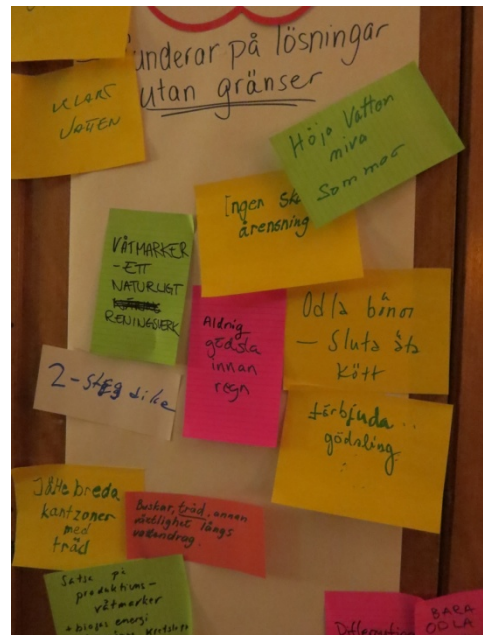 funderar på lösningar
utan gränser
KLART
VATTEN
Höja Vatten
nivå
Sommar
Ingen
årensning
VÅTMARKER
- ETT
NATURLIGT
RENINGSVERK
Aldrig
gödsla
innan
regn
Odla bönor
- Sluta äta
kött
2-steg dike
förbjuda
gödsling
Jätte breda
kantzoner
med
träd
Buskar, träd, annan
växtlighet längs
vattendrag.
Satsa på
produktions-
våtmarker
biogas energi
BARA
ODLA